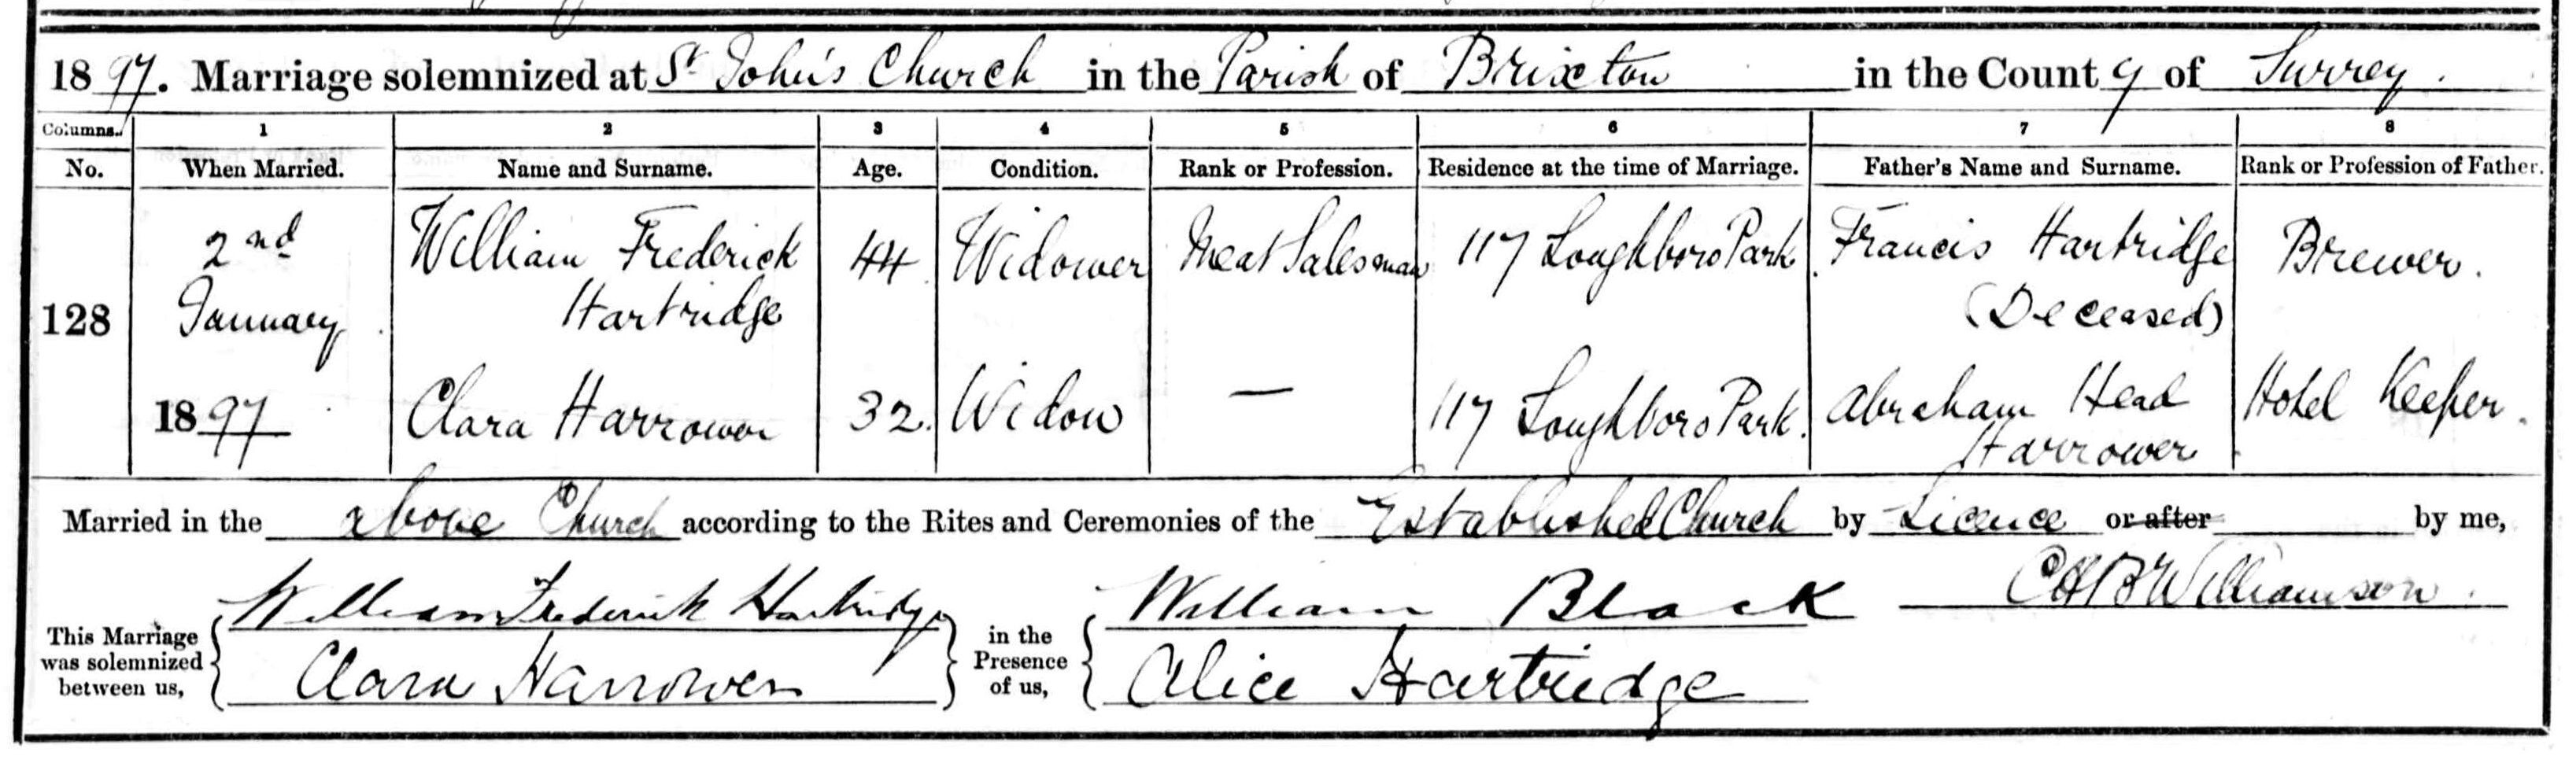 1897. Marriage solemnized at St John's Church in the Parish of Brixton in the County of Surrey.
Columns. 1 2 3 4 5 6 7 8
No. When Married. Name and Surname. Age. Condition. Rank or Profession. Residence at the time of Marriage. Father's Name and Surname. Rank or Profession of Father.
128
2nd
January
1897
William Frederick
Hartridge
44
Widower
Meat Salesman
117 Loughboro Park.
Francis Hartridge
(Deceased)
Brewer.
Clara Harrower
32.
Widow
—
117 Loughboro Park.
Abraham Head
Harrower
Hotel Keeper.
Married in the above Church according to the Rites and Ceremonies of the Established Church by Licence or after by me,
This Marriage
was solemnized
between us,
William Frederick Hartridge
Clara Harrower
in the
Presence
of us,
William Black
Alice Hartridge
C H B Williamson.